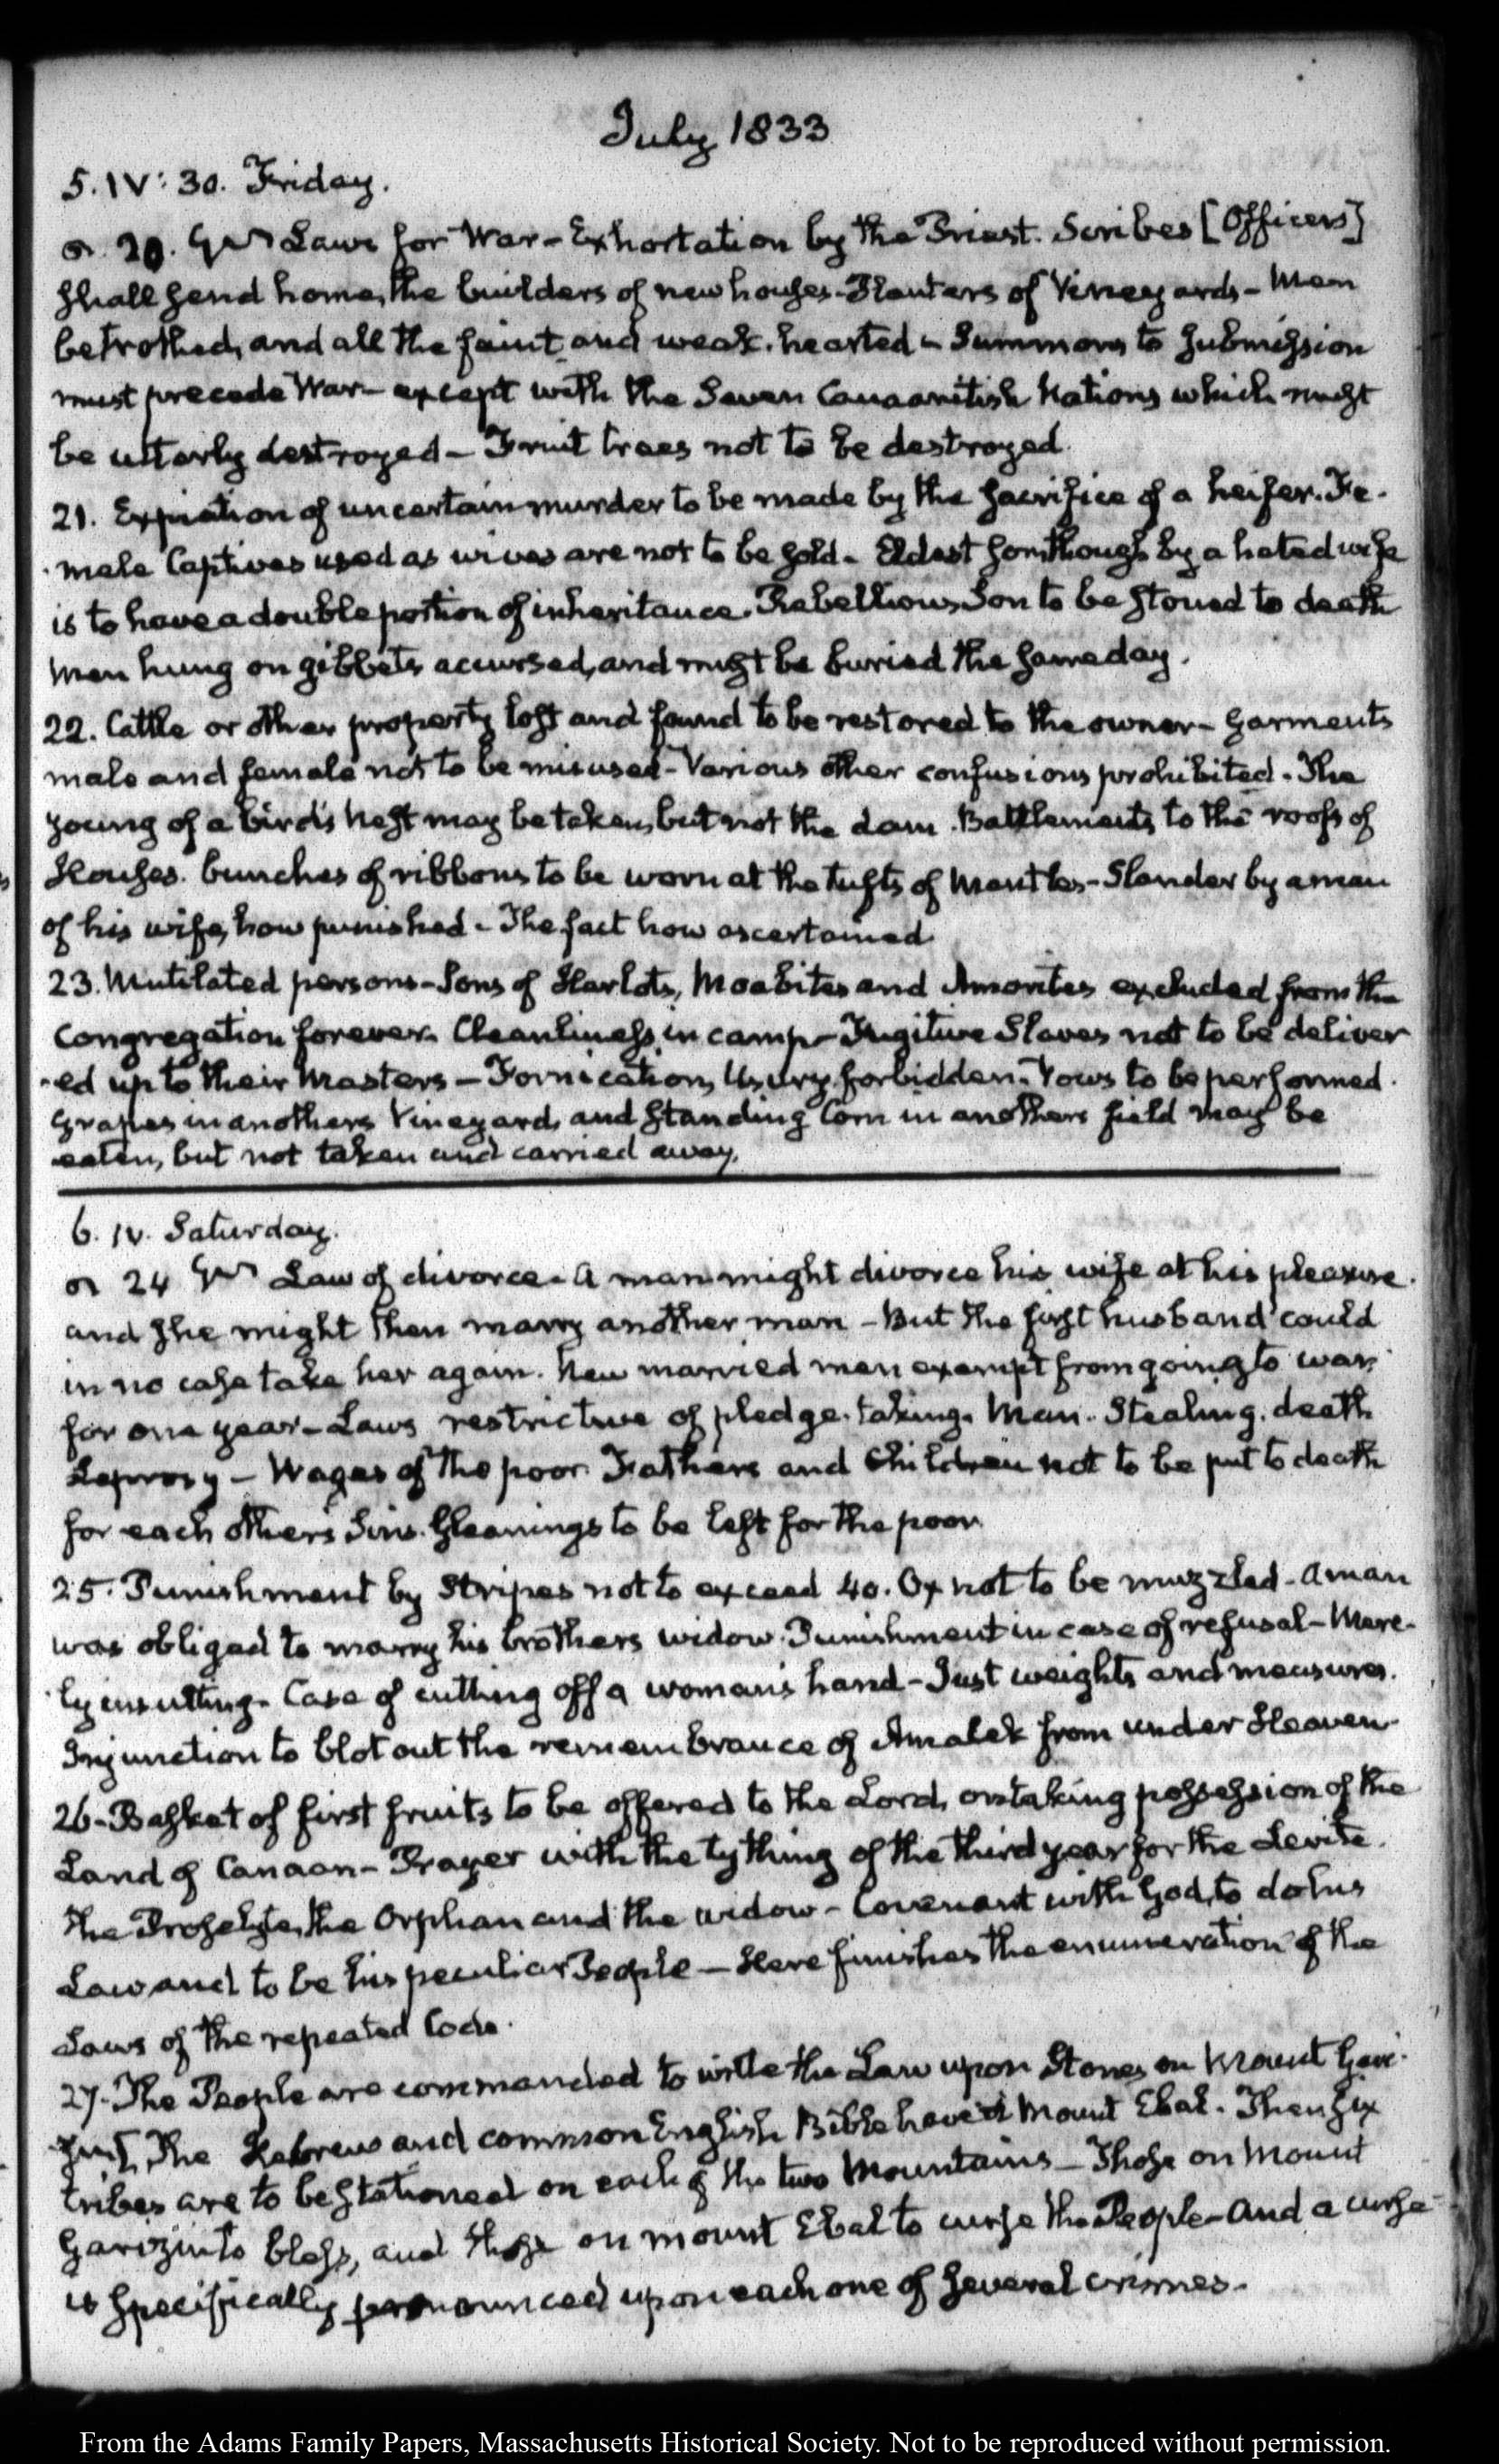 July 1833
5. IV: 30. Friday.
20. Laws for War – Exhortation by the Priest. Scribes [Officers]
shall send home, the builders of new houses – Planters of Vineyards – Men
betrothed, and all the faint and weak-hearted – Summons to submission
must precede War – except with the Seven Canaanitish Nations which must
be utterly destroyed – Fruit trees not to be destroyed.
21. Expiation of uncertain murder to be made by the sacrifice of a heifer. Fe-
-male Captives used as wives are not to be sold – Eldest son though by a hated wife
is to have a double portion of inheritance. Rebellious Son to be stoned to death
Men hung on gibbets accursed, and must be buried the same day.
22. Cattle or other property lost and found to be restored to the owner – Garments
male and female not to be misused – Various other confusions prohibited – The
young of a bird's nest may be taken, but not the dam. Battlements to the roofs of
Houses. bunches of ribbons to be worn at the tufts of Mantles – Slander by a man
of his wife, how punished – The fact how ascertained.
23. Mutilated persons – Sons of Harlots, Moabites and Amorites excluded from the
Congregation forever. Cleanliness in camp – Fugitive Slaves not to be deliver
-ed up to their Masters – Fornication, Usury forbidden. Vows to be performed.
Grapes in anothers Vineyard, and standing Corn in anothers field may be
eaten, but not taken and carried away.
6. IV. Saturday.
24 Law of divorce. A man might divorce his wife at his pleasure.
and she might then marry another man – But the first husband could
in no case take her again. New married men exempt from going to war
for one year – Laws restrictive of pledge-taking. Man-Stealing. death
Leprosy – Wages of the poor Fathers and Children not to be put to death
for each others Sins. Gleanings to be left for the poor.
25. Punishment by Stripes not to exceed 40. Ox not to be muzzled – A man
was obliged to marry his brothers widow. Punishment in case of refusal – Mere-
ly insulting. Case of cutting off a woman's hand – Just weights and measures.
Injunction to blot out the remembrance of Amalek from under Heaven.
26 – Basket of first fruits to be offered to the Lord, on taking possession of the
Land of Canaan – Prayer with the tything of the third year for the Levite.
the Proselyte, the Orphan and the widow – Covenant with God, to do his
Law and to be his peculiar People – Here finishes the enumeration of the
Laws of the repeated Code.
27. The People are commanded to write the Law upon Stones on Mount Gari-
zim [The Hebrew and common English Bible have it Mount Ebal. Then six
tribes are to be stationed on each of the two Mountains – Those on Mount
Garizim to bless, and those on mount Ebal to curse the People – And a curse
is specifically pronounced upon each one of several crimes.
From the Adams Family Papers, Massachusetts Historical Society. Not to be reproduced without permission.